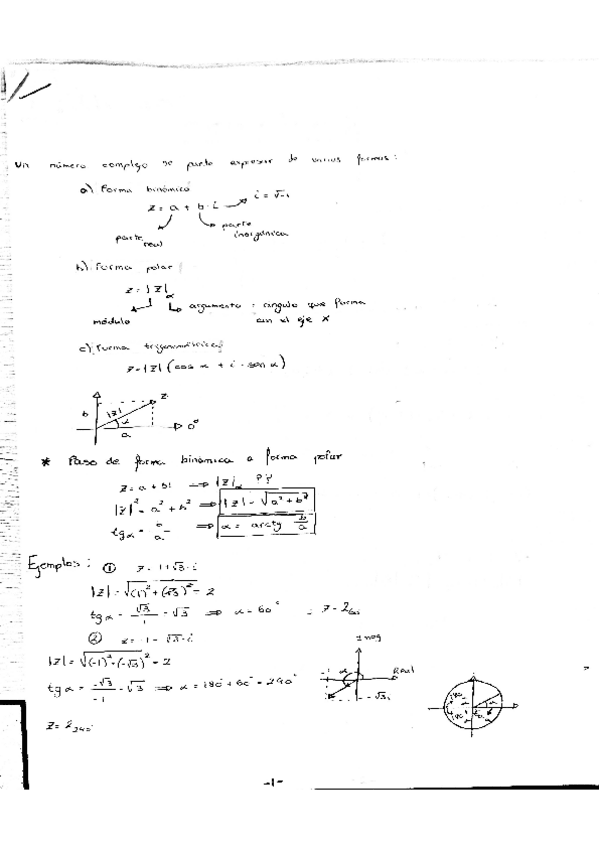 Un número complejo se puede expresar de varias formas:
a) Forma binómica
z = a + b·i → i = √-1
parte real
parte imaginária
b) Forma polar
z = |z|α
argumento = ángulo que forma
módulo
con el eje X
c) Forma trigonométrica
z = |z| (cos α + i · sen α)
z
b |z| α
a 0°
* Paso de forma binómica a forma polar
z = a + bi → |z|α
|z|² = a² + b² ⇒ |z| = √a² + b²
tg α = ⇒ α = arctg b/a
Ejemplos: ① z = 1 + √3·i
|z| = √(1)² + (√3)² = 2
tg α = √3/1 = √3 ⇒ α = 60° z = 2₆₀
② z = -1 - √3·i
|z| = √(-1)² + (-√3)² = 2
tg α = -√3/-1 = √3 ⇒ α = 180 + 60 = 240°
z = 2₂₄₀
-1 α Real
-√3
-1-